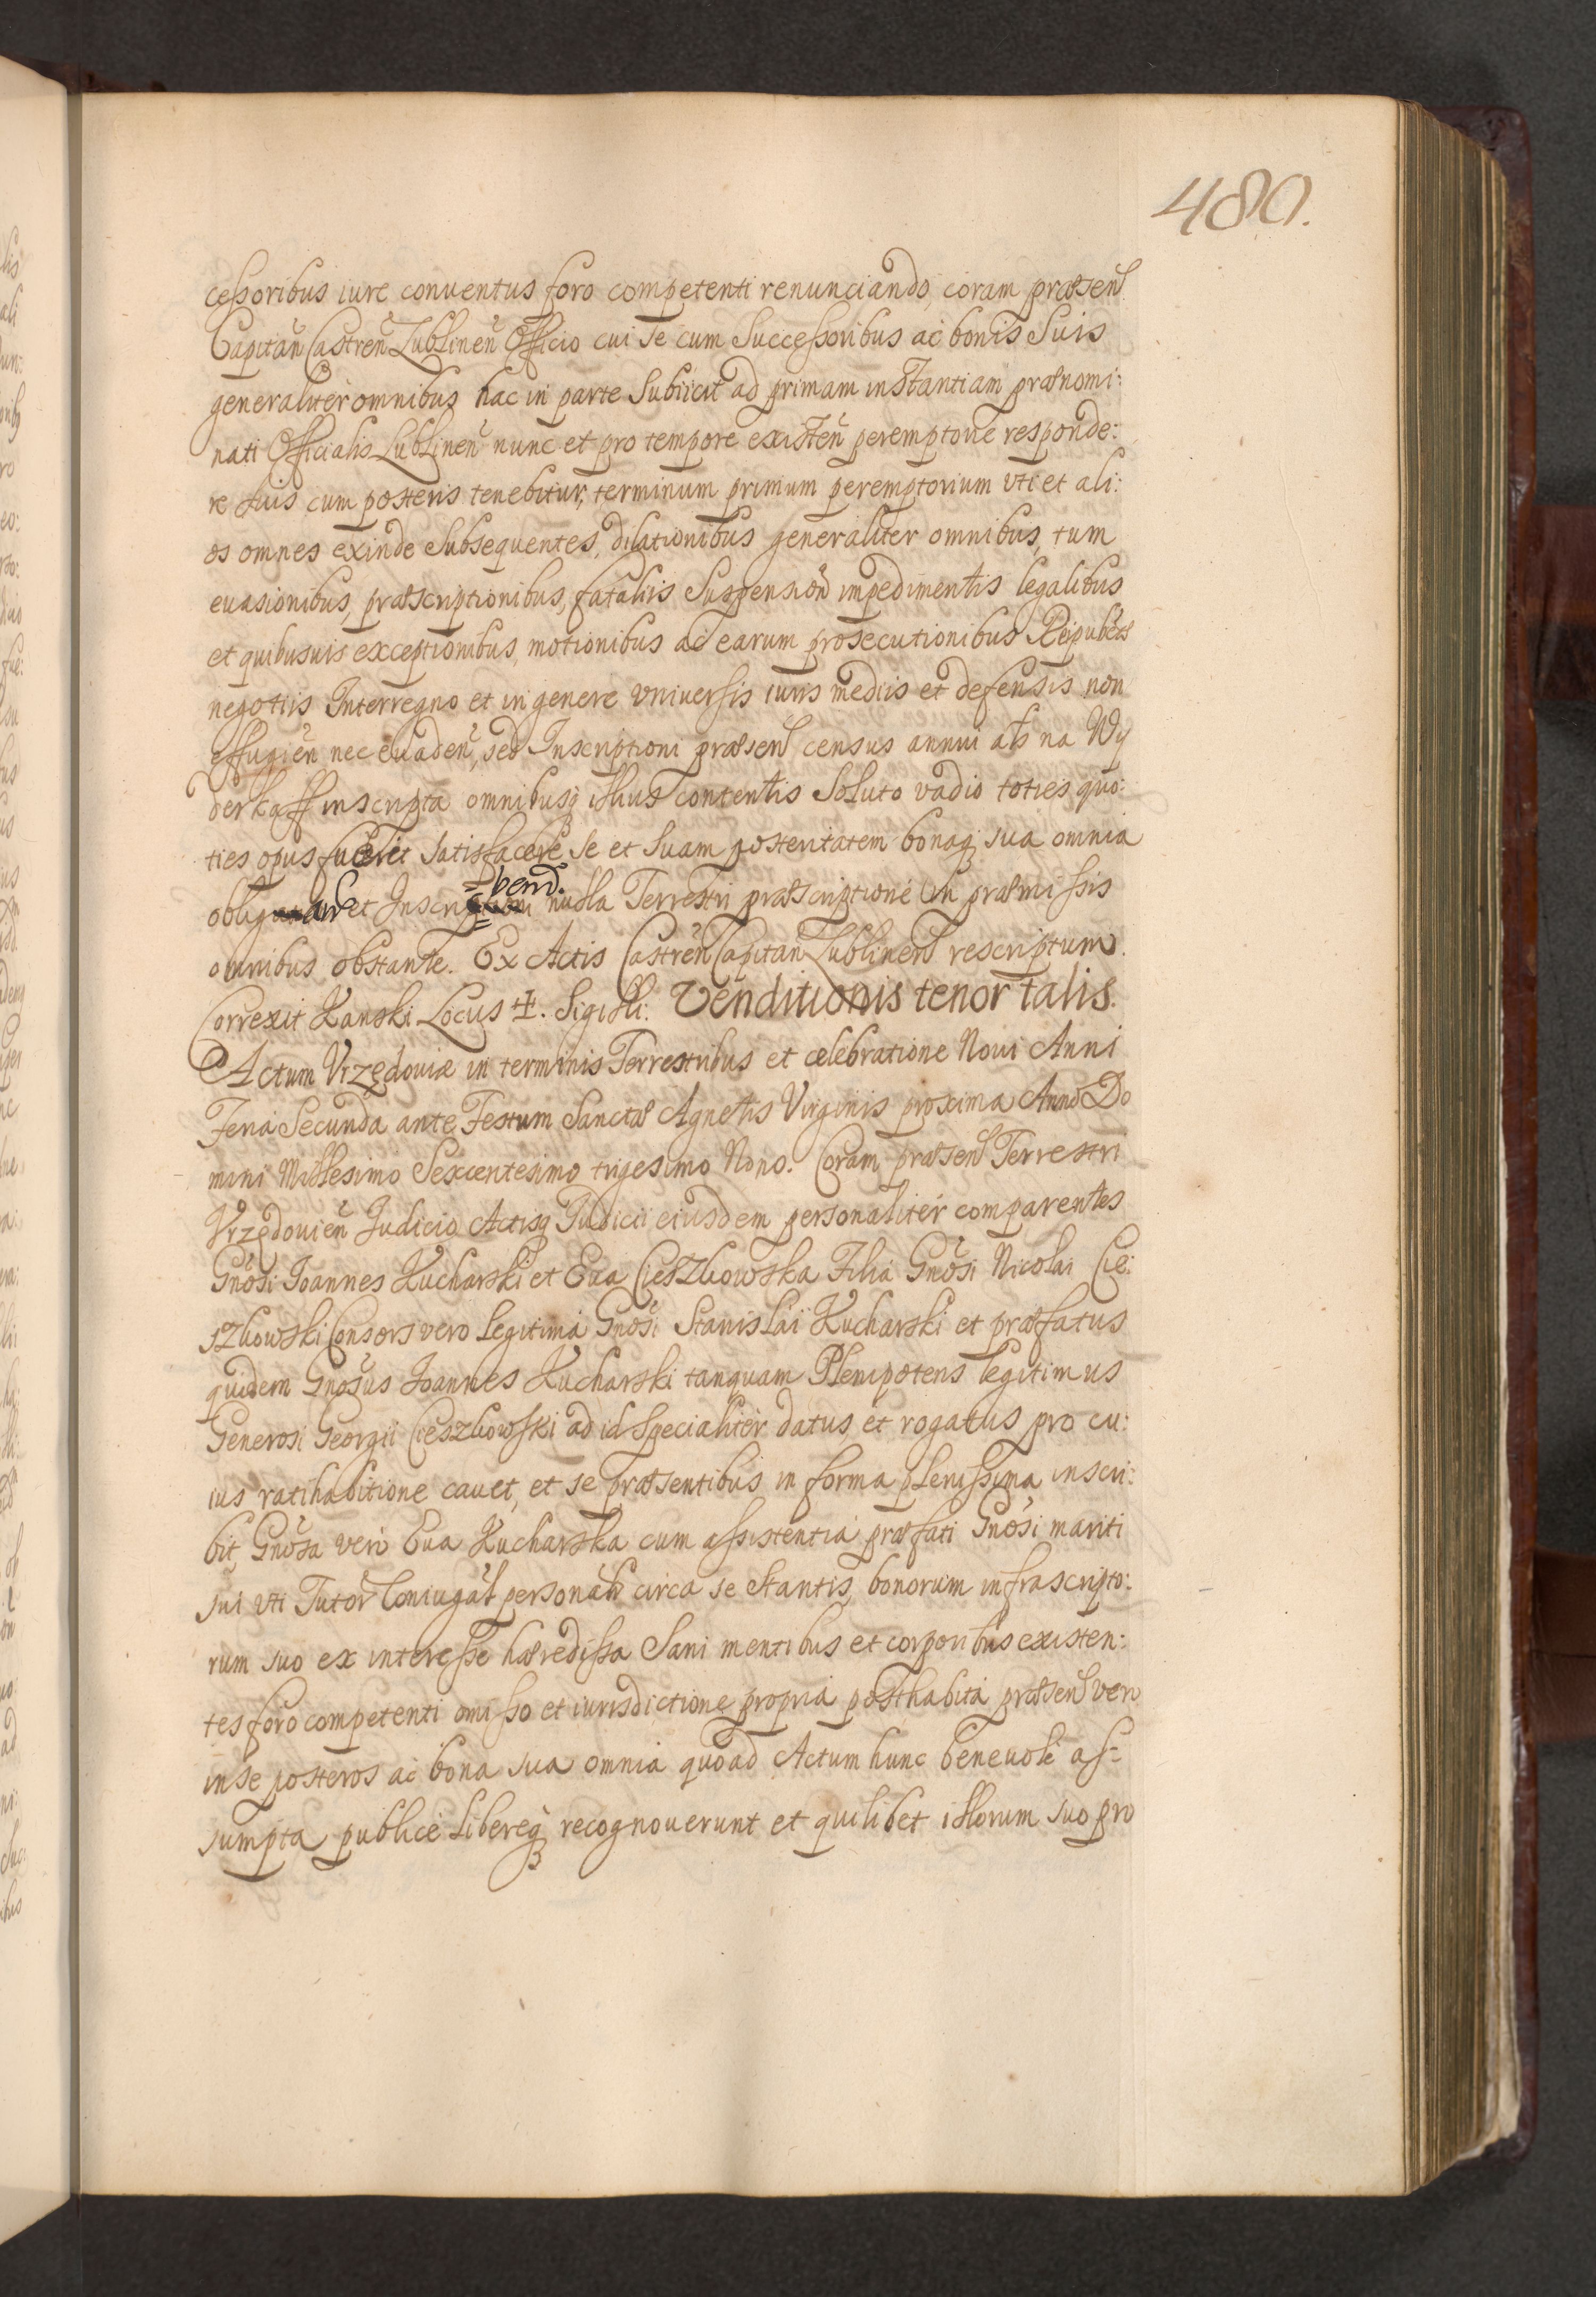 480.
cessoribus iure conuentus foro competenti renunciando, coram præsen̄
Capitan̄ Castren̄ Lublinen̄ Officio cui se cum Successoribus ac bonis Suis
generaliter omnibus hac in parte Subiicit ad primam instantiam prænomi:
nati Officialis Lublinen̄ nunc et pro tempore existen̄ peremptorie responde:
re suis cum posteris tenebitur, terminum primum peremptorium vti et ali:
os omnes exinde Subsequentes, dilationibus generaliter omnibus, tum
euasionibus, præscriptionibus, fataliis Suspension̄ impedimentis legalibus
et quibusuis exceptionibus, motionibus ac earum prosecutionibus Reipublcæ
negotiis Interregno et in genere vniuersis iuris mediis et defensis non
effugien̄ nec euaden̄, sed Inscriptioni præsen̄ census annui als na Wy
derkaff inscripta omnibusq illius contentis Soluto vadio toties quo:
ties opus fuerit Satisfacere Se et Suam posteritatem bonaq sua omnia
et nulla Terrestri præscriptione in præmissis
bend.
omnibus obstante. Ex Actis Castren̄ Capitan̄ Lublinen̄ rescriptum.
Correxit Kanski Locus ✠. Sigilli. Venditionis tenor talis.
Actum Vrzędoviæ in terminis Terrestribus et celebratione Noui Anni
Feria Secunda ante Festum Sanctæ Agnetis Virginis proxima Anno Do
mini Millesimo Sexcentesimo trigesimo Nono. Coram præsen̄ Terrestri
Vrzędouien̄ Iudicio Actisq Iudicii eiusdem personaliter comparentes
Gnosi Ioannes Kucharski et Eua Cieszkowska Filia Gnosi Nicolai Cie:
szkowski Consors vero Legitima Gnosi Stanislai Kucharski et præfatus
quidem Gnosus Ioannes Kucharski tanquam Plenipotens legitimus
Generosi Georgii Cieszkowski ad id Specialiter datus et rogatus pro cu:
ius ratihabitione cauet, et se præsentibus in forma plenissima inscri:
bit, Gnosa vero Eua Kucharska cum assistentia præfati Gnosi mariti
sui vti Tutor Coniugal personalr circa se Stantis, bonorum infrascripto:
rum suo ex interesse hæredissa Sani mentibus et corporibus existen:
tes foro competenti omisso et iurisdictione propria posthabita præsen̄ vero
in se posteros ac bona sua omnia quoad Actum hunc beneuole as:
sumpta publice Libereq recognouerunt et quilibet illorum suo pro